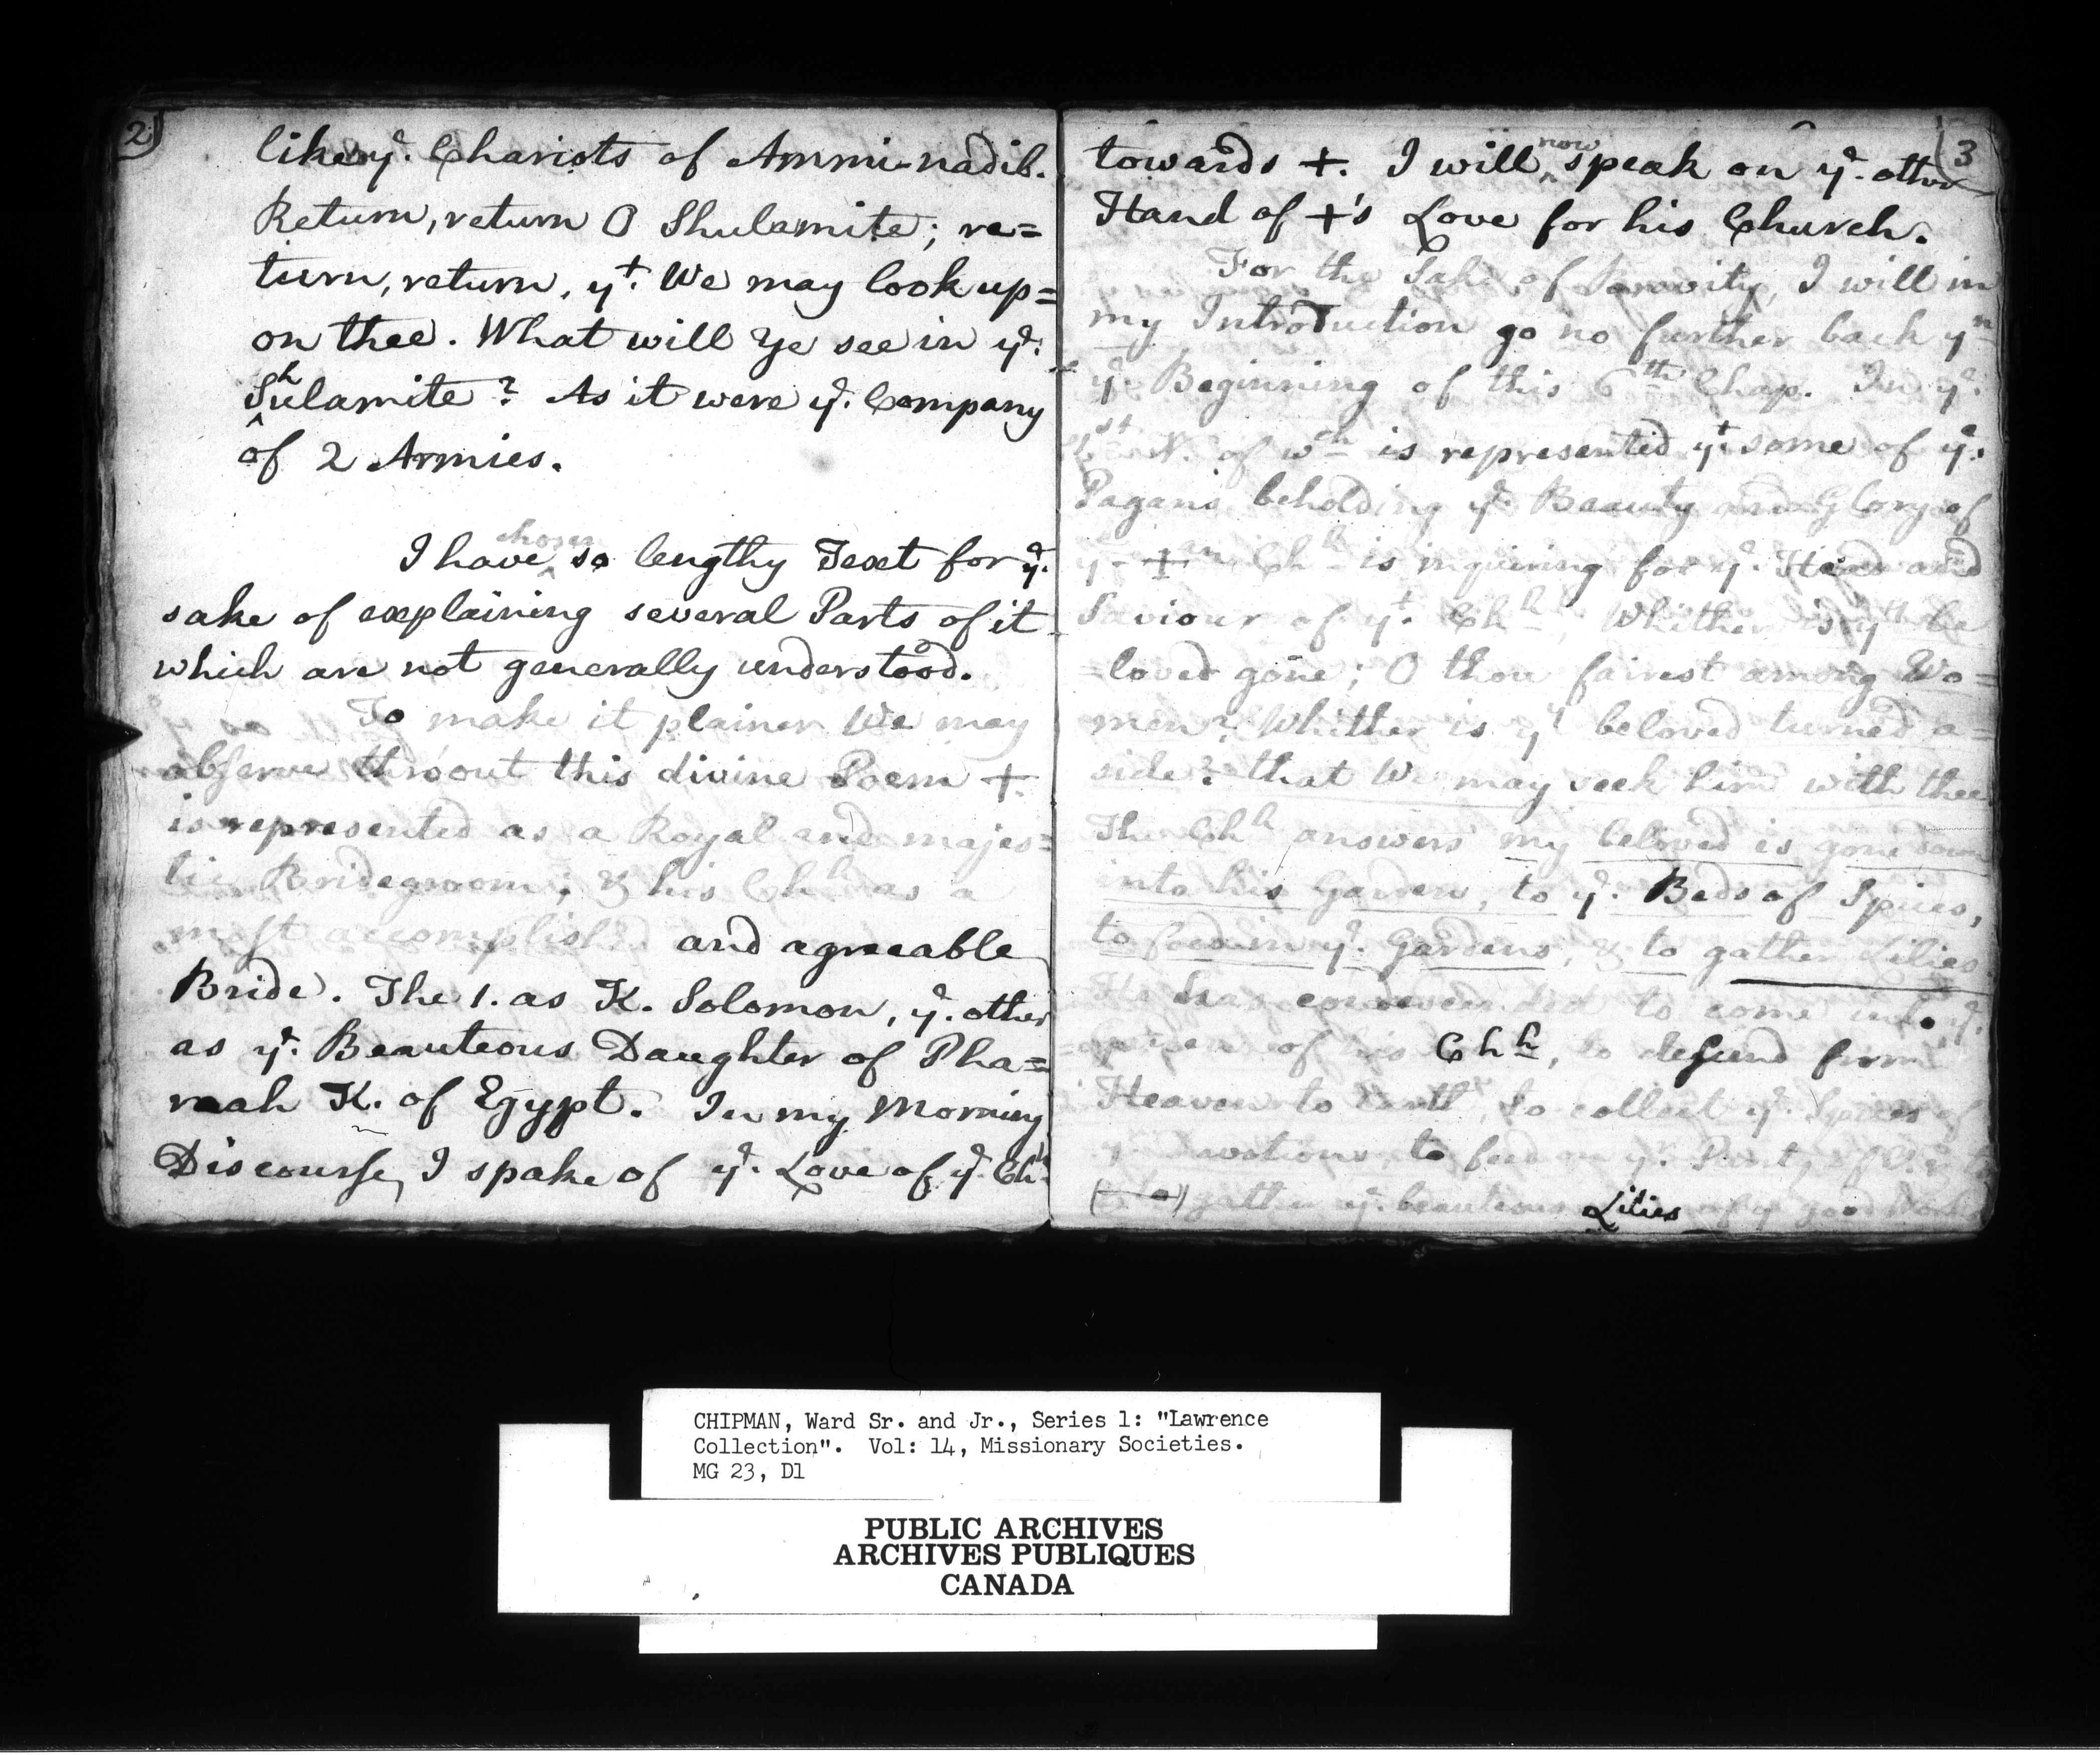 2
like yᵉ. Chariots of Ammi-nadib.
Return, return O Shulamite; re=
turn, return, yᵗ. We may look up=
on thee. What will Ye see in yᵉ.
Shulamite? As it were yᵉ. Company
of 2 Armies.
I have chosen so lengthy Text for yᵉ.
sake of explaining several Parts of it
which are not generally understood.
To make it plainer We may
observe thro'out this divine Poem +.
is represented as a Royal and majes=
tic Bridegroom; & his Chʰ as a
most accomplished and agreeable
Bride. The 1. as K. Solomon, yᵉ. other
as yᵉ. Beauteous Daughter of Pha=
raoh K. of Egypt. In my Morning
Discourse, I spake of yᵉ. Love of yᵉ. Chʰ.
3
towards +. I will now speak on yᵉ. other
Hand of +'s Love for his Church.
For the Sake of Brevity, I will in
my Introduction go no further back yⁿ
yᵉ. Beginning of this 6th Chap. In yᵉ.
1st V. of wch is represented yᵗ some of yᵉ.
Pagans beholding yᵉ. Beauty and Glory of
yᵉ +n Chʰ is inquiring for yᵉ. Head and
Saviour of yᵗ. Chʰ; Whither is yʸ be
=loved gone; O thou fairest among Wo=
men? Whither is yʸ beloved turned a=
side? that We may seek him with thee
The Chʰ answers my beloved is gone down
into his Garden, to yᵉ. Beds of Spices,
to feed in yᵉ. Gardens, & to gather Lilies
He has condescended to come into yᵉ.
of his Chʰ, to descend from
Heaven to Earth, to collect yᵉ. Spices of
to feed on yᵉ.
gather yᵉ. beauteous Lilies of yᵉ good Works
CHIPMAN, Ward Sr. and Jr., Series 1: "Lawrence
Collection". Vol: 14, Missionary Societies.
MG 23, D1
PUBLIC ARCHIVES
ARCHIVES PUBLIQUES
CANADA